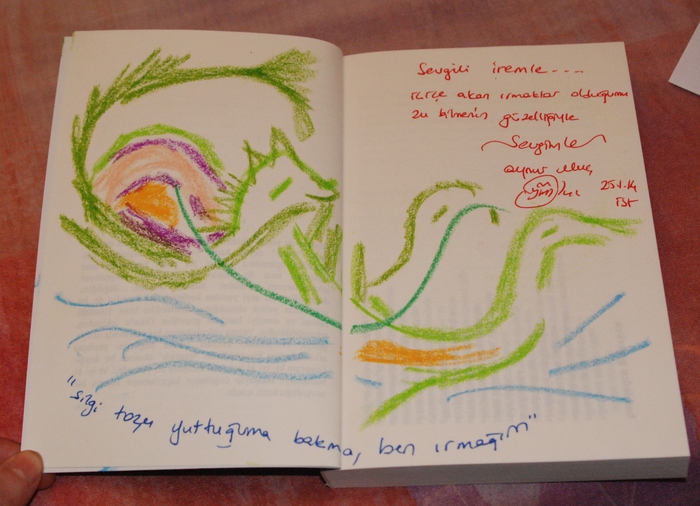 Sevgili iremle....
içiçe akan ırmaklar olduğumu
zu bilmenin güzelliğiyle
Sevgimle
25.1.14
İST
"silgi tozu yuttuğuma bakma, ben ırmağım"